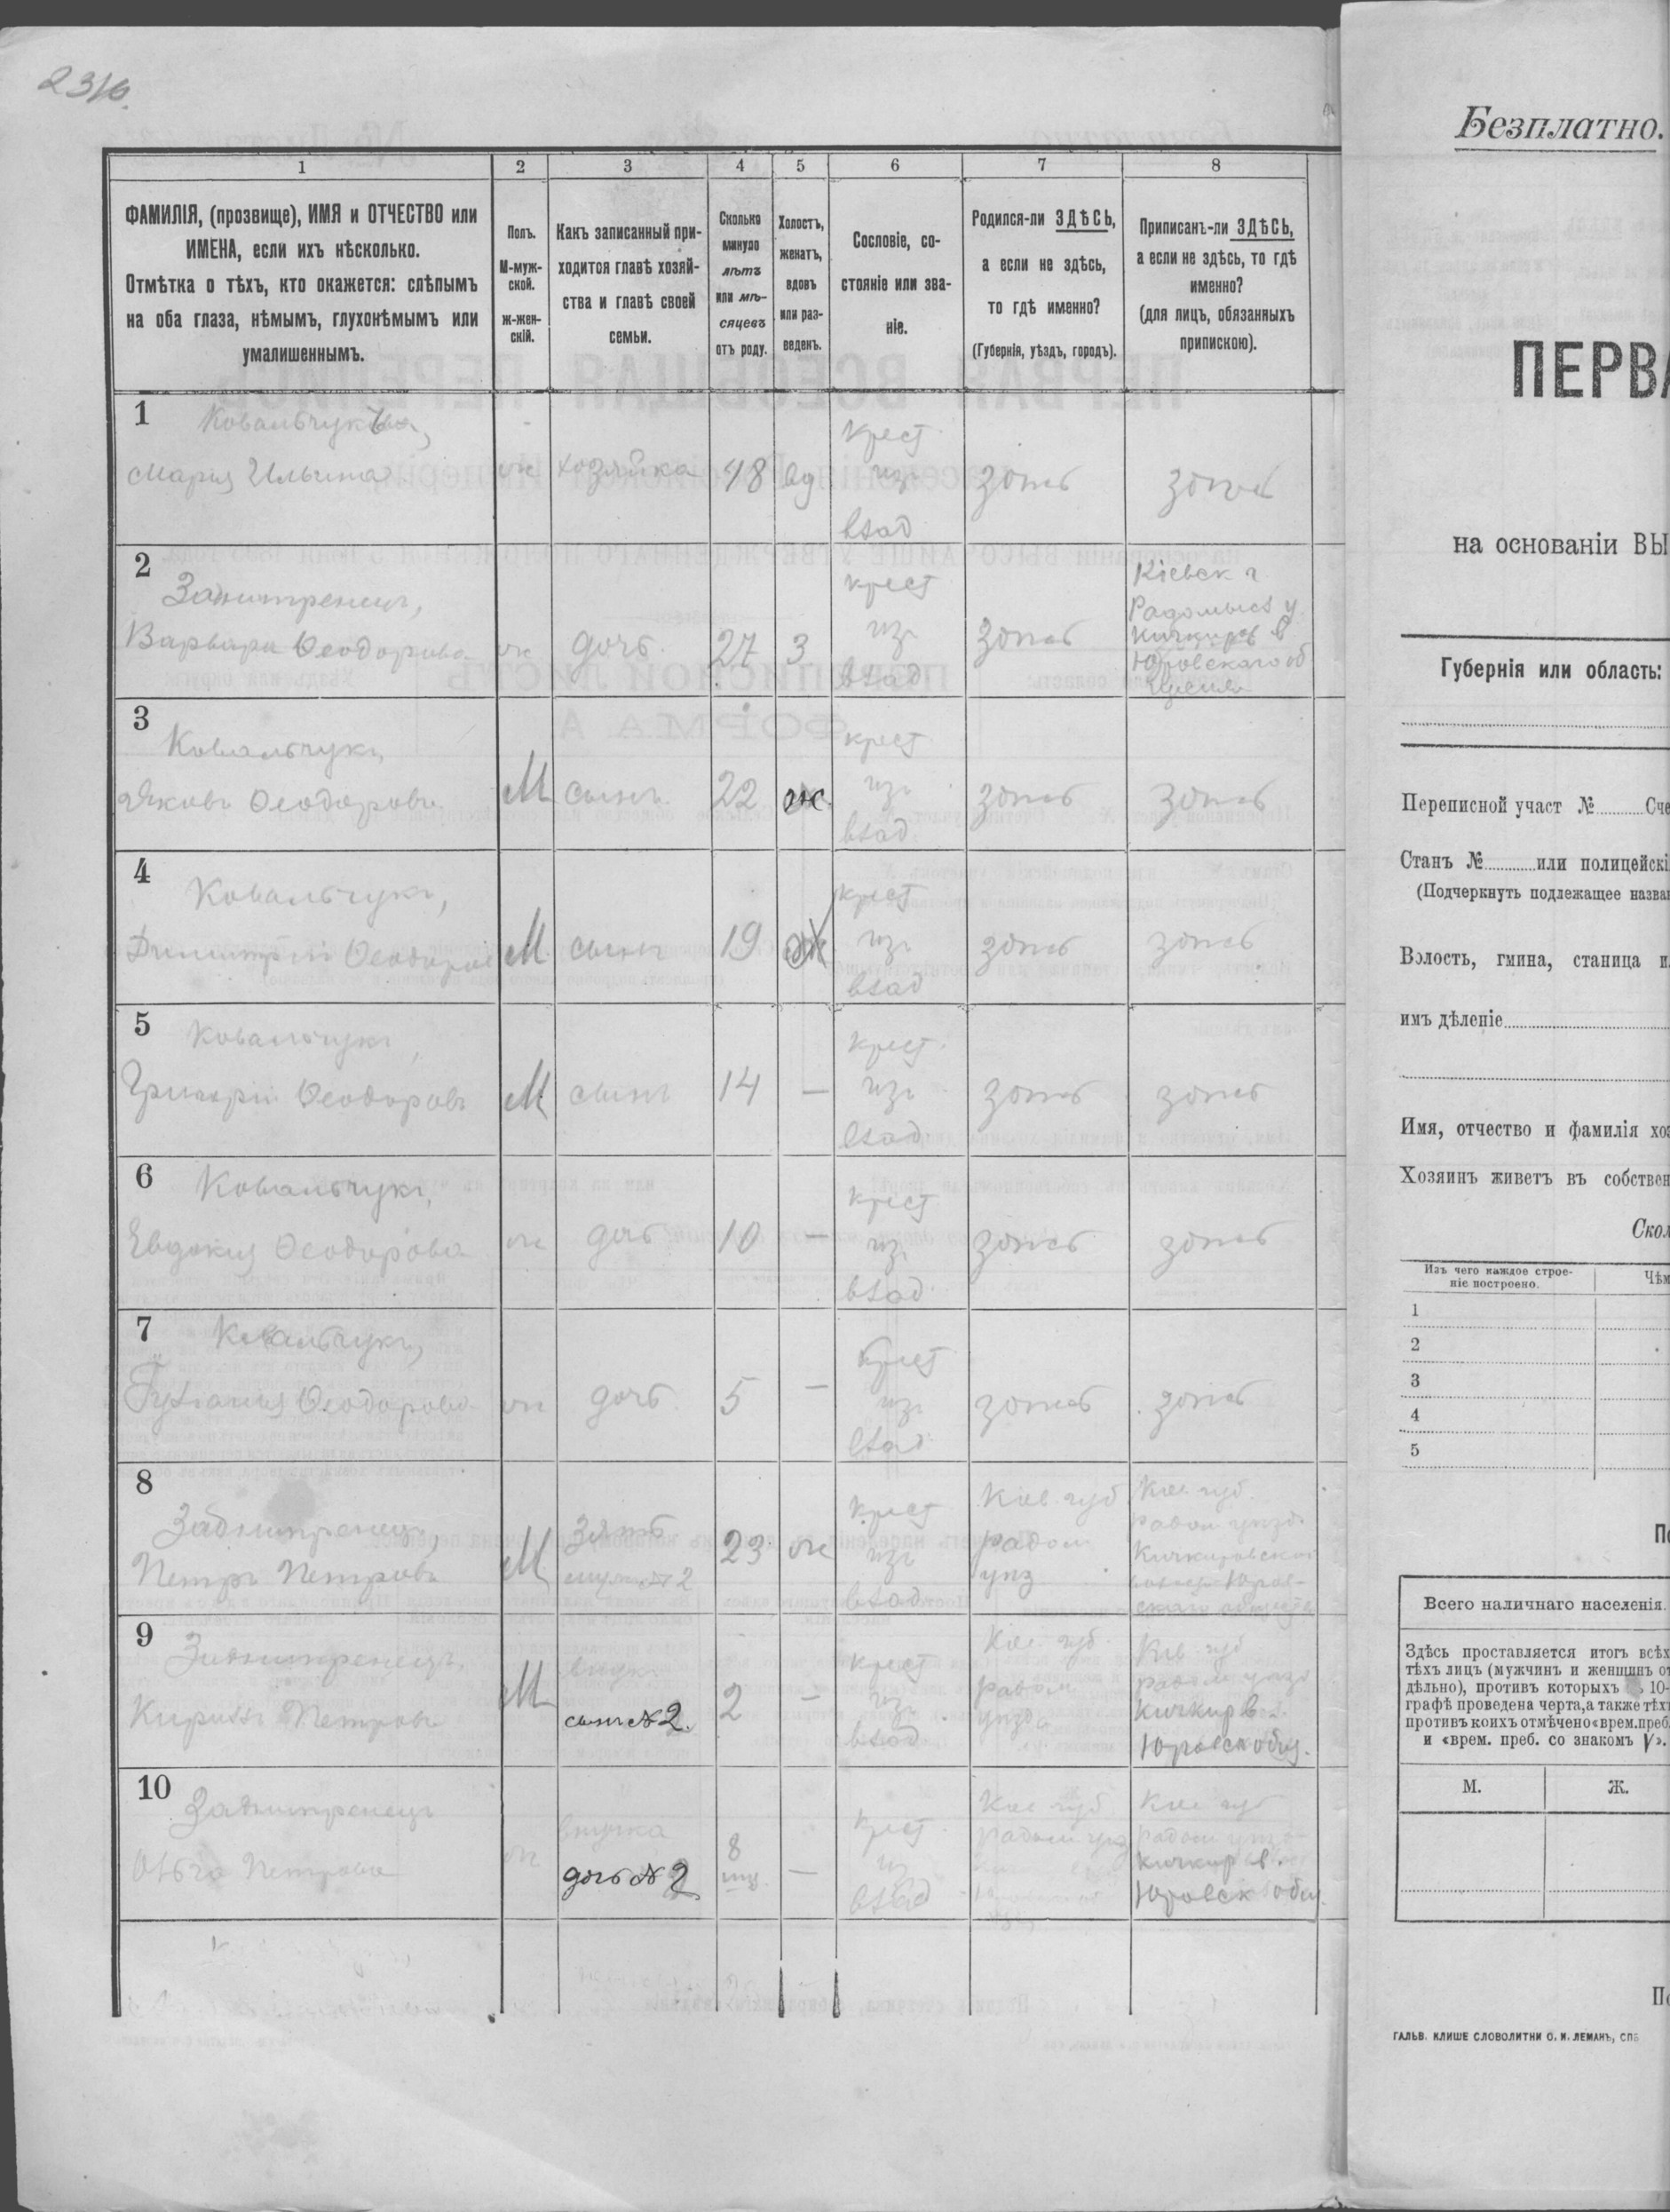 231б.
1
2
3
4
5
6
7
8
ФАМИЛІЯ, (прозвище), ИМЯ и ОТЧЕСТВО или
ИМЕНА, если ихъ нѣсколько.
Отмѣтка о тѣхъ, кто окажется: слѣпымъ
на оба глаза, нѣмымъ, глухонѣмымъ или
умалишеннымъ.
Полъ.
М-муж-
ской.
ж-жен-
скій.
Какъ записанный при-
ходится главѣ хозяй-
ства и главѣ своей
семьи.
Сколько
минуло
лѣтъ
или мѣ-
сяцевъ
отъ роду.
Холостъ,
женатъ,
вдовъ
или раз-
веденъ.
Сословіе, со-
стояніе или зва-
ніе.
Родился-ли ЗДѢСЬ,
а если не здѣсь,
то гдѣ именно?
(Губернія, уѣздъ, городъ).
Приписанъ-ли ЗДѢСЬ,
а если не здѣсь, то гдѣ
именно?
(для лицъ, обязанныхъ
припискою).
1
Мария Ильина
ж
хозяйка
48
вд
крест
изъ
влад
здѣсь
здѣсь
2
Заднипренецъ,
Варвара Ѳеодорова
ж
дочь
27
З
крест
изъ
влад
здѣсь
Кіевск г
Радомысл у.
Кичкиров в
Юровскаго об
3
Ковальчукъ,
Яковъ Ѳеодоровъ
М
сынъ
22
ж
крест
изъ
влад
здѣсь
здѣсь
4
Ковальчукъ,
Димитрій
М
сынъ
19
крест
изъ
влад
здѣсь
здѣсь
5
Ковальчукъ,
Григорій Ѳеодоровъ
М
сынъ
14
—
крест
изъ
влад
здѣсь
здѣсь
6
Ковальчукъ,
Евдокия Ѳеодорова
ж
дочь
10
—
крест
изъ
влад
здѣсь
здѣсь
7
Ковальчукъ,
Ѳеодорова
ж
дочь
5
—
крест
изъ
влад
здѣсь
здѣсь
8
Заднипренецъ,
Петръ Петровъ
М
Зять
мужъ №2
23
ж
крест
изъ
влад
Кіев. губ
радом
уѣз
Кіев. губ.
радом уѣзд.
Кичкировской
волости Юров-
скаго общества
9
Заднипренецъ
Кириллъ Петровъ
М
внукъ
сынъ №2.
2
—
крест
изъ
влад
Кіев. губ.
радом
уѣзда
Кіев губ
радом уѣзд
Кичкир в.
Юровск общ.
10
Заднипренецъ
Ольга Петрова
ж
внучка
дочь №2
8
мѣс.
—
крест
изъ
влад
Кіев губ
радом уѣзд
Кіев губ
радом уѣзд
Кичкир в.
Юровск общ.
Безплатно.
ПЕРВА
на основаніи ВЫ
Губернія или область:
Переписной участ № Сче
Станъ № или полицейскі
(Подчеркнуть подлежащее назва
Волость, гмина, станица и
имъ дѣленіе
Имя, отчество и фамилія хоз
Хозяинъ живетъ въ собствен
Скол
Изъ чего каждое строе-
ніе построено.
Чѣм
1
2
3
4
5
По
Всего наличнаго населенія.
Здѣсь проставляется итогъ всѣхъ
тѣхъ лицъ (мужчинъ и женщинъ от
дѣльно), противъ которыхъ въ 10-
графѣ проведена черта, а также тѣхъ
противъ коихъ отмѣчено «врем. преб.
и «врем. преб. со знакомъ V».
М.
Ж.
По
ГАЛЬВ. КЛИШЕ СЛОВОЛИТНИ О. И. ЛЕМАНЪ, СПБ